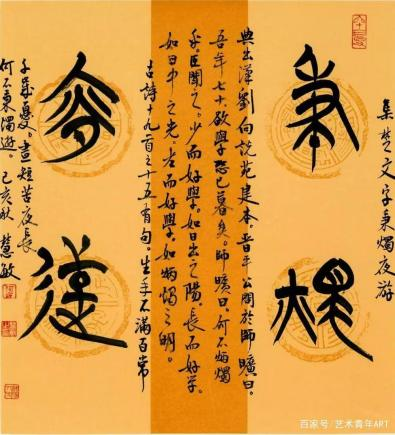 集楚文字秉燭夜游
秉燭
典出漢劉向說苑建本。晋平公問於師曠曰。
吾年七十欲學恐已暮矣。師曠曰。何不炳燭
乎。臣聞之。少而好學。如日出之陽。長而好学。
如日中之光。老而好學。如炳燭之明。
古詩十九首之十五有句。生年不滿百常
夜遊
千歲憂。晝短苦夜長
何不秉燭遊。己亥秋 慧敏
百家号/艺术青年ART